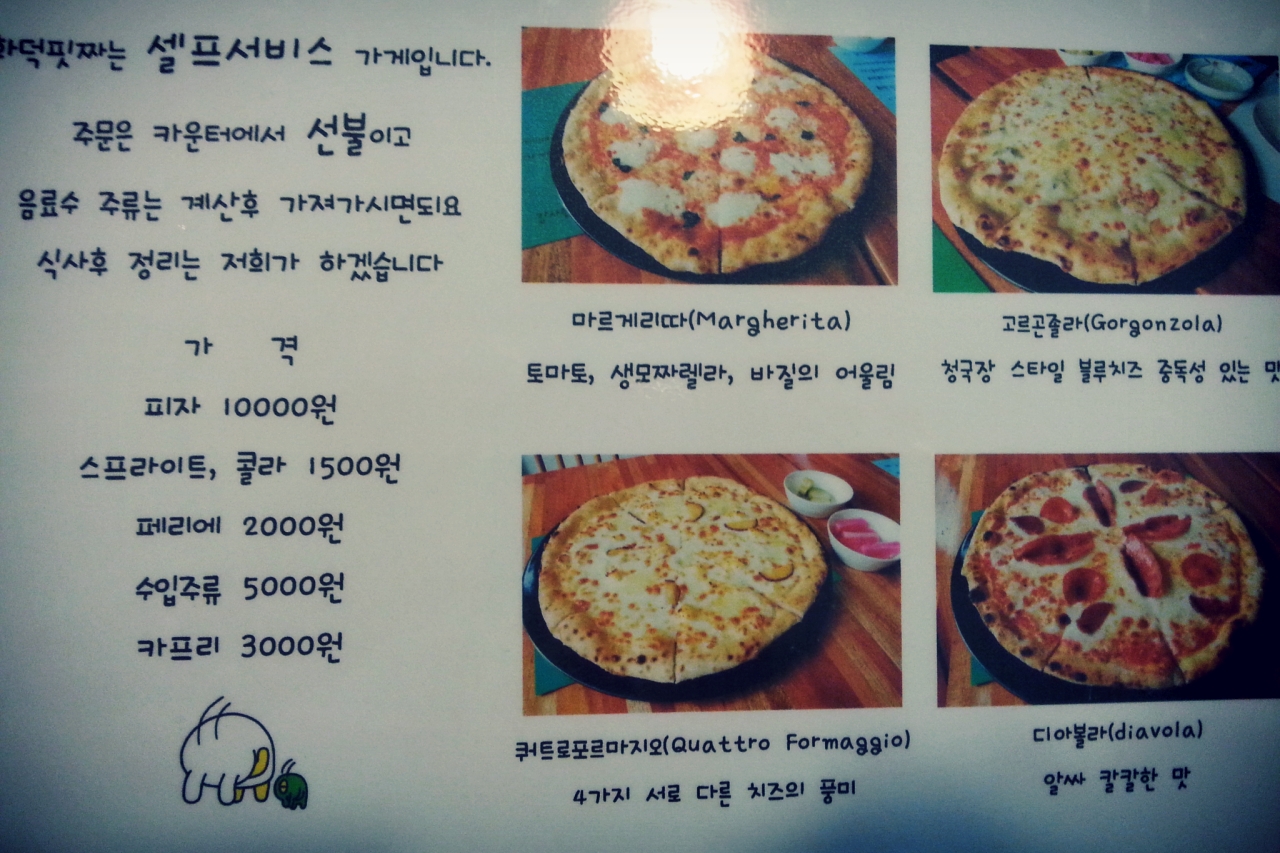 화덕핏짜는 셀프서비스 가게입니다.
주문은 카운터에서 선불이고
음료수 주류는 계산후 가져가시면되요
식사후 정리는 저희가 하겠습니다
가 격
피자 10000원
스프라이트, 콜라 1500원
페리에 2000원
수입주류 5000원
카프리 3000원
마르게리따(Margherita)
토마토, 생모짜렐라, 바질의 어울림
고르곤졸라(Gorgonzola)
청국장 스타일 블루치즈 중독성 있는 맛
쿼트로포르마지오(Quattro Formaggio)
4가지 서로 다른 치즈의 풍미
디아볼라(diavola)
알싸 칼칼한 맛